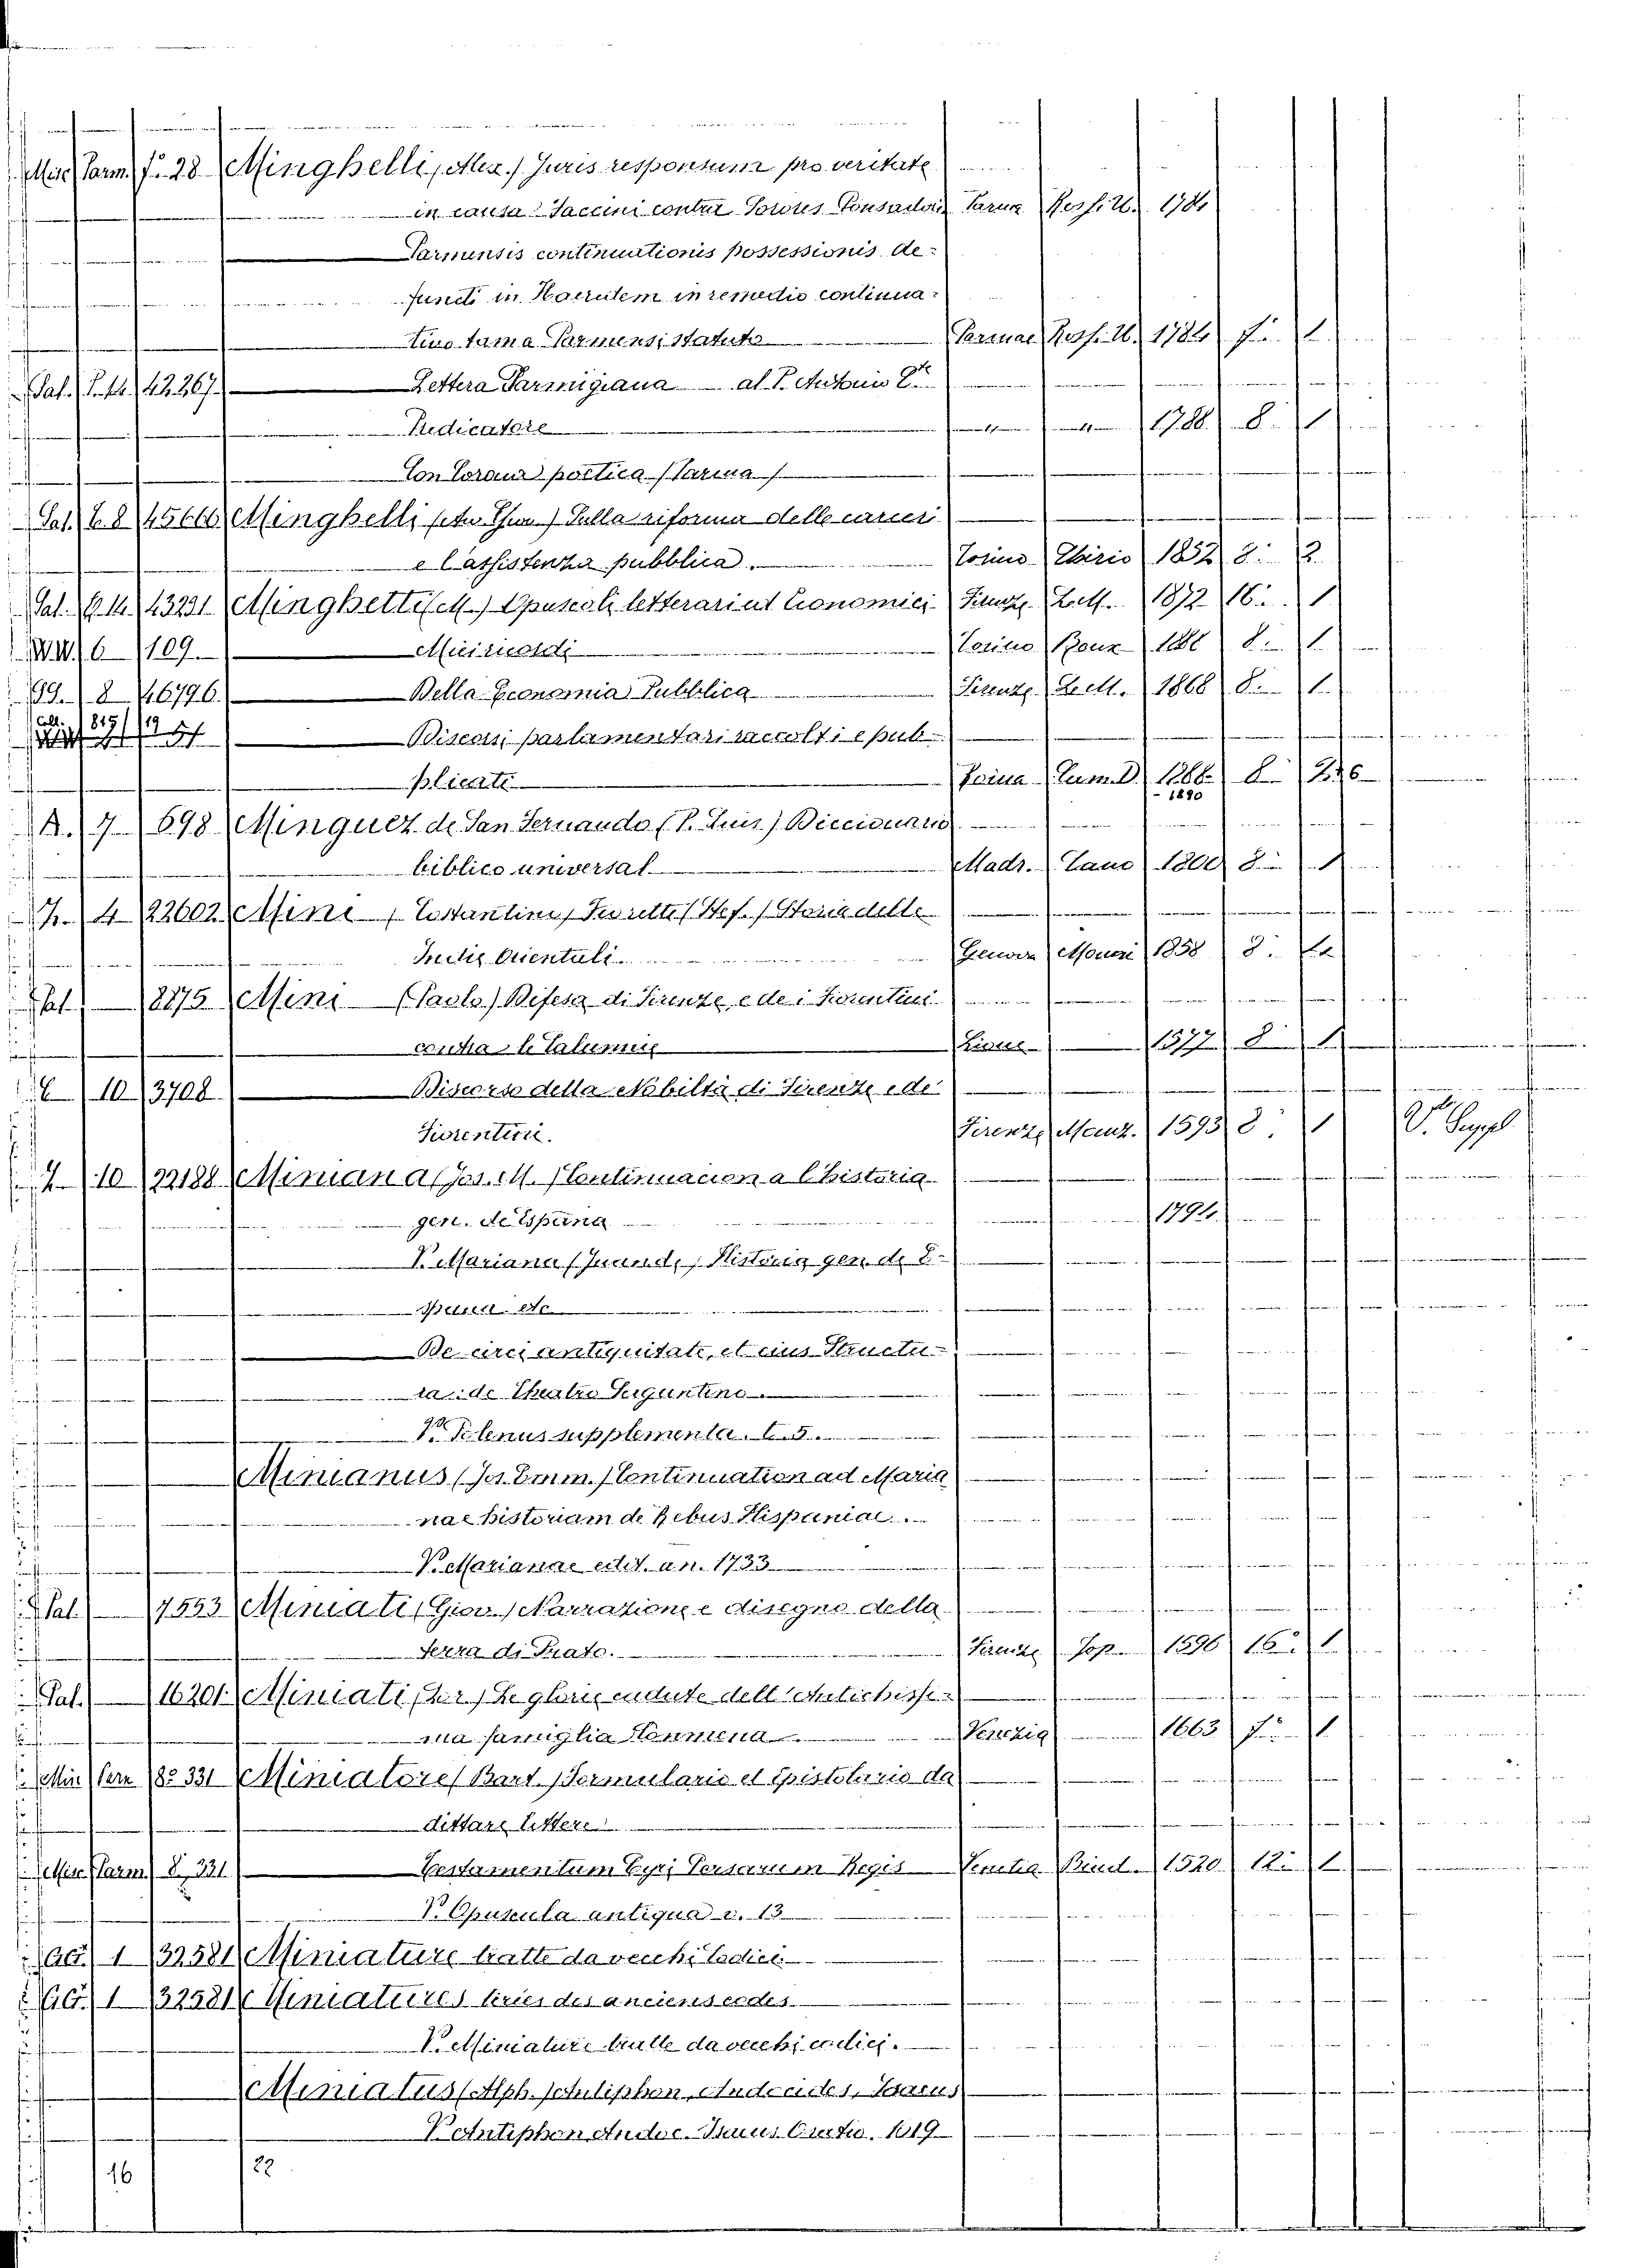 Misc. Parm. f.° 28 Minghelli, Alex. / Juris responsum pro veritate
in causa Saccini contra Parma Resp. U. 1784
Parmensis continuationis possessionis de-
functi in Haeredem in remedio continua-
tivo tam a Parmensi statuto Parmae Resp. U. 1784 f.° 1
Pal. P. 14. 42267 Lettera Parmigiana al P. Antonio
Predicatore " " 1788 8. 1
Con Corona poetica / Parma /
Sal. 6. 8 45666 Minghelli / Sulla riforma delle carceri
e l'assistenza pubblica. Torino 1852 8. 2
Pal. P. 14. 43291 Minghetti (M.) Opuscoli letterari ed Economici Firenze Le M. 1872 16. 1
WW. 6 109. Miei ricordi Torino Roux 1888 8. 1
99. 8 46796 Della Economia Pubblica Firenze Le M. 1868 8. 1
Coll. 815/19 Discorsi parlamentari raccolti e pub-
plicati Roma Cam. D. 1888 8
- 1890
A. 7 698 Minguez de San Fernando (P. Luis) Diccionario
biblico universal Madr. Cano 1800 8. 1
7. 4 22602 Mini, Costantini, (Stef.) Storia delle
Indie Orientali Genova 1858 8.
Pal. 8875 Mini (Paolo) Difesa di Firenze e dei Fiorentini
contra le Calunnie Lione 1577 8 1
6 10 3708 Discorso della Nobiltà di Firenze e de
Fiorentini. Firenze Manz. 1593 8. 1 V. Suppl.
7 10 22188 Miniana (Jos. M. / Continuacion a l'historia
gen. de España 1794
V. Mariana (Juan de) Historia gen. de E-
spana etc
De circi antiquitate, et eius Structu-
ra: de Theatro Saguntino
V. Polenus supplementa. t. 5.
Minianus (Jos. Emm. / Continuation ad Maria
nae historiam de Rebus Hispaniae.
V. Marianae edit. an. 1733
Pal. 7553 Miniati (Giov. / Narrazione e disegno della
terra di Prato. Firenze Tos. 1596 16. 1
Pal. 16201 Miniati / Le glorie cadute dell'Antichissi-
ma famiglia Comnena Venezia 1663 f.° 1
Misc. Parm. 8.° 331 Miniatore (Bart. / Formulario et Epistolario da
dittare littere
Misc. Parm. 8.° 331 Testamentum Cyri Persarum Regis Venetia Bind. 1520 12. 1
V. Opuscula antiqua v. 13
GG. 1 32581 Miniature tratte da vecchi Codici
GG. 1 32581 Miniatures tirées des anciens codes
V. Miniature tratte da vecchi codici.
Miniatus (Alph. / Antiphon, Andocides, Isaeus
V. Antiphon Andoc. Isaeus Oratio. 1619
16 22